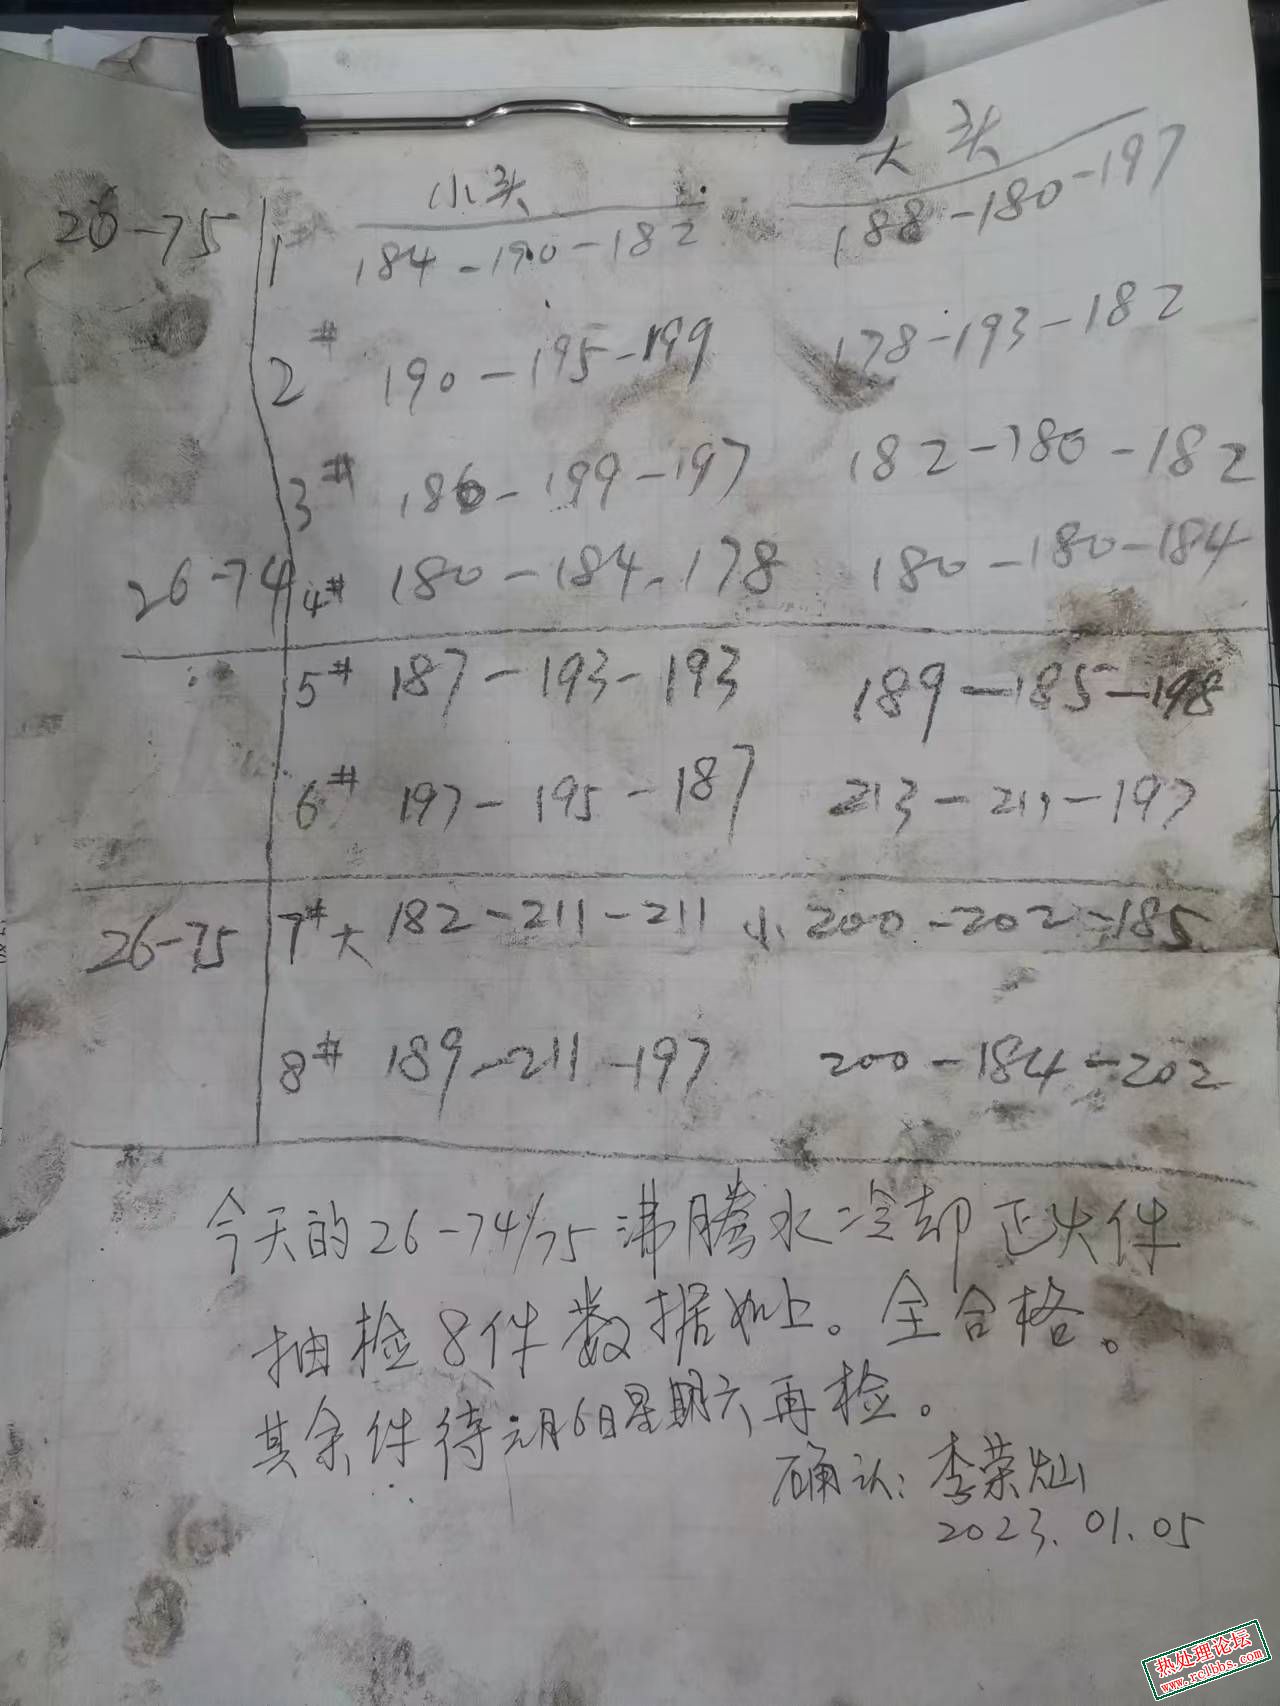 小头 大头
26-75 1# 184-190-182 188-180-197
2# 190-195-199 178-193-182
3# 186-199-197 182-180-182
26-74 4# 180-184-178 180-180-184
5# 187-193-193 189-185-198
6# 197-195-187 213-211-197
26-75 7# 大 182-211-211 小 200-202-185
8# 189-211-197 200-184-202
今天的26-74/75沸腾水冷却正火件
抽检8件数据如上。全合格。
其余件待元月6日星期六再检。
确认:李荣灿
2023.01.05
热处理论坛
www.rclbbs.com